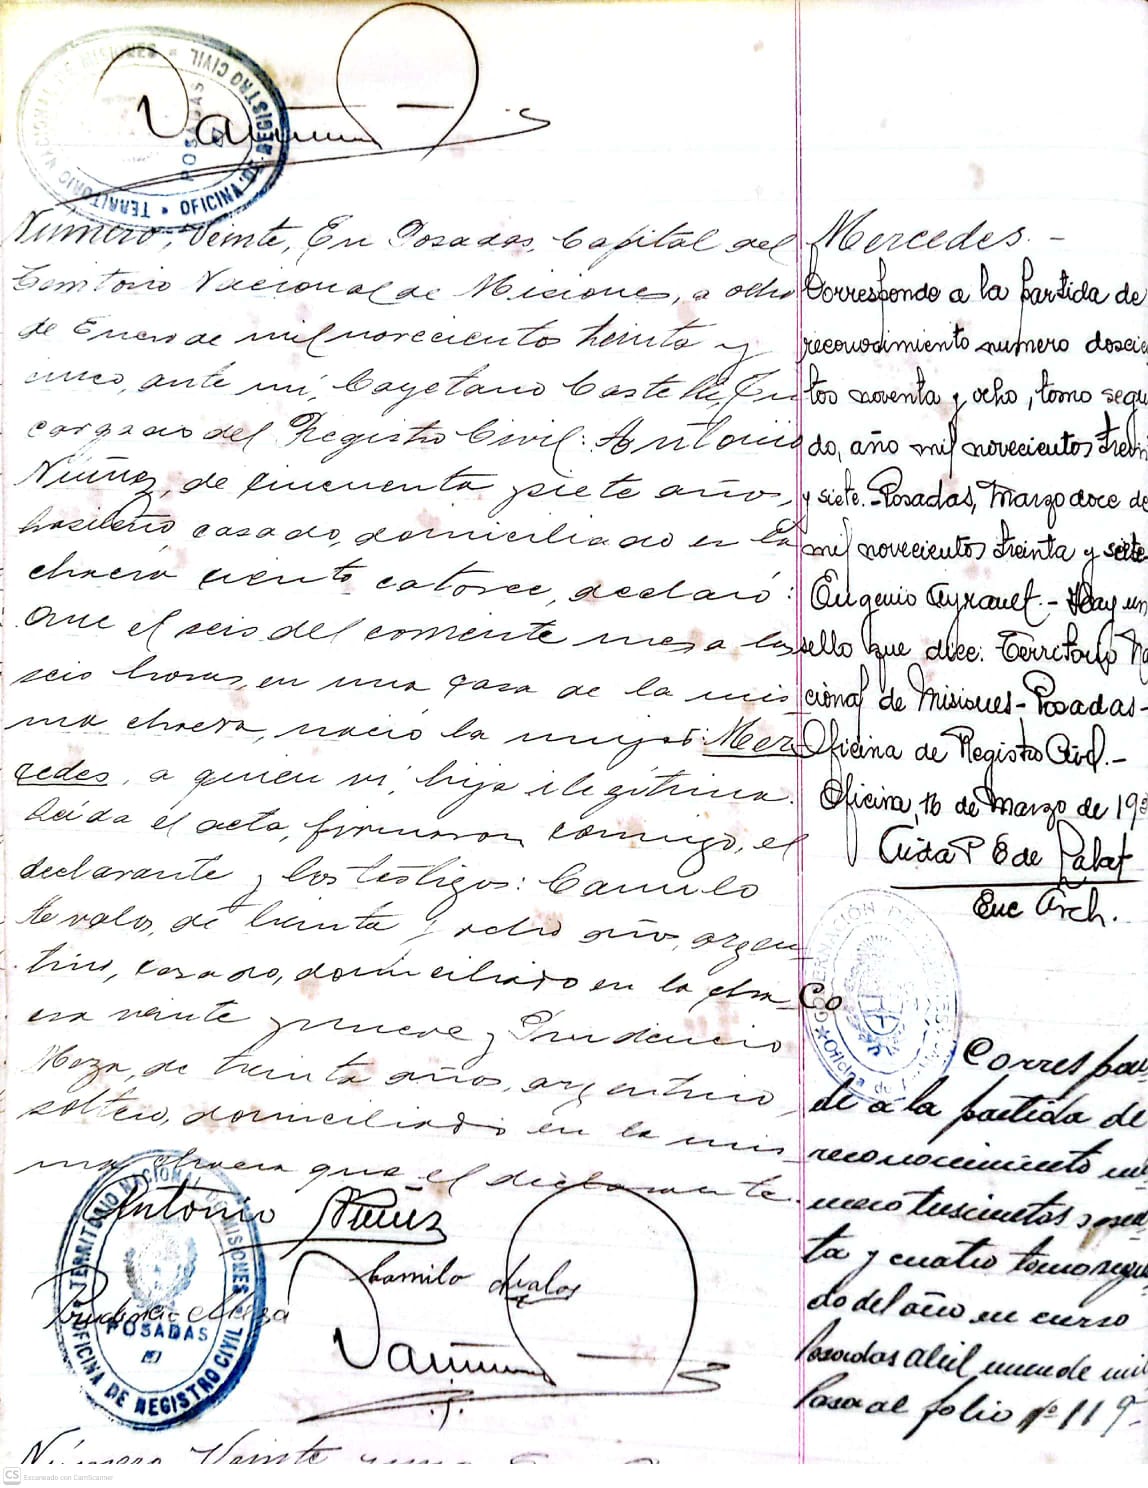 TERRITORIO NACIONAL DE MISIONES • OFICINA DE REGISTRO CIVIL •
POSADAS
Número, Veinte, En Posadas, Capital del
Territorio Nacional de Misiones, a ocho
de Enero de mil novecientos treinta y
cinco, ante mí, Cayetano Castelli, En
cargado del Registro Civil: Antonio
Núñez, de cincuenta y siete años,
brasileño, casado, domiciliado en la
chacra ciento catorce, declaró:
Que el seis del corriente mes a las
seis horas, en una casa de la mis
ma chacra, nació la mujer: Mer
cedes, a quien vi, hija ilegítima.
Leída el acta, firmaron conmigo, el
declarante y los testigos: Camilo
de treinta y ocho años, argen
tino, casado, domiciliado en la cha
cra veinte y nueve y Prudencio
Meza, de treinta años, argentino,
soltero, domiciliado en la mis
ma chacra que el declarante.
Antonio Núñez
Camilo dvalos
Prudencio Meza
TERRITORIO NACIONAL DE MISIONES
POSADAS
OFICINA DE REGISTRO CIVIL
Número Veinte y uno
Mercedes.-
Corresponde a la partida de
reconocimiento numero doscien
tos noventa y ocho, tomo segun
do, año mil novecientos trein
y siete.-Posadas, Marzo doce de
mil novecientos treinta y siete-
Eugenio Ayrault.- Hay un
sello que dice: Territorio Na
cional de Misiones-Posadas-
Oficina de Registro Civil.-
Oficina, 16 de Marzo de 193
Enc Arch.
GOBERNACIÓN DE
Oficina de
Co
Correspon
de a la partida de
reconocimiento nu
mero trescientos sesen
ta y cuatro tomo segun
do del año en curso
Posadas abril nueve de mil
Pasa al folio nº 119-
CS Escaneado con CamScanner